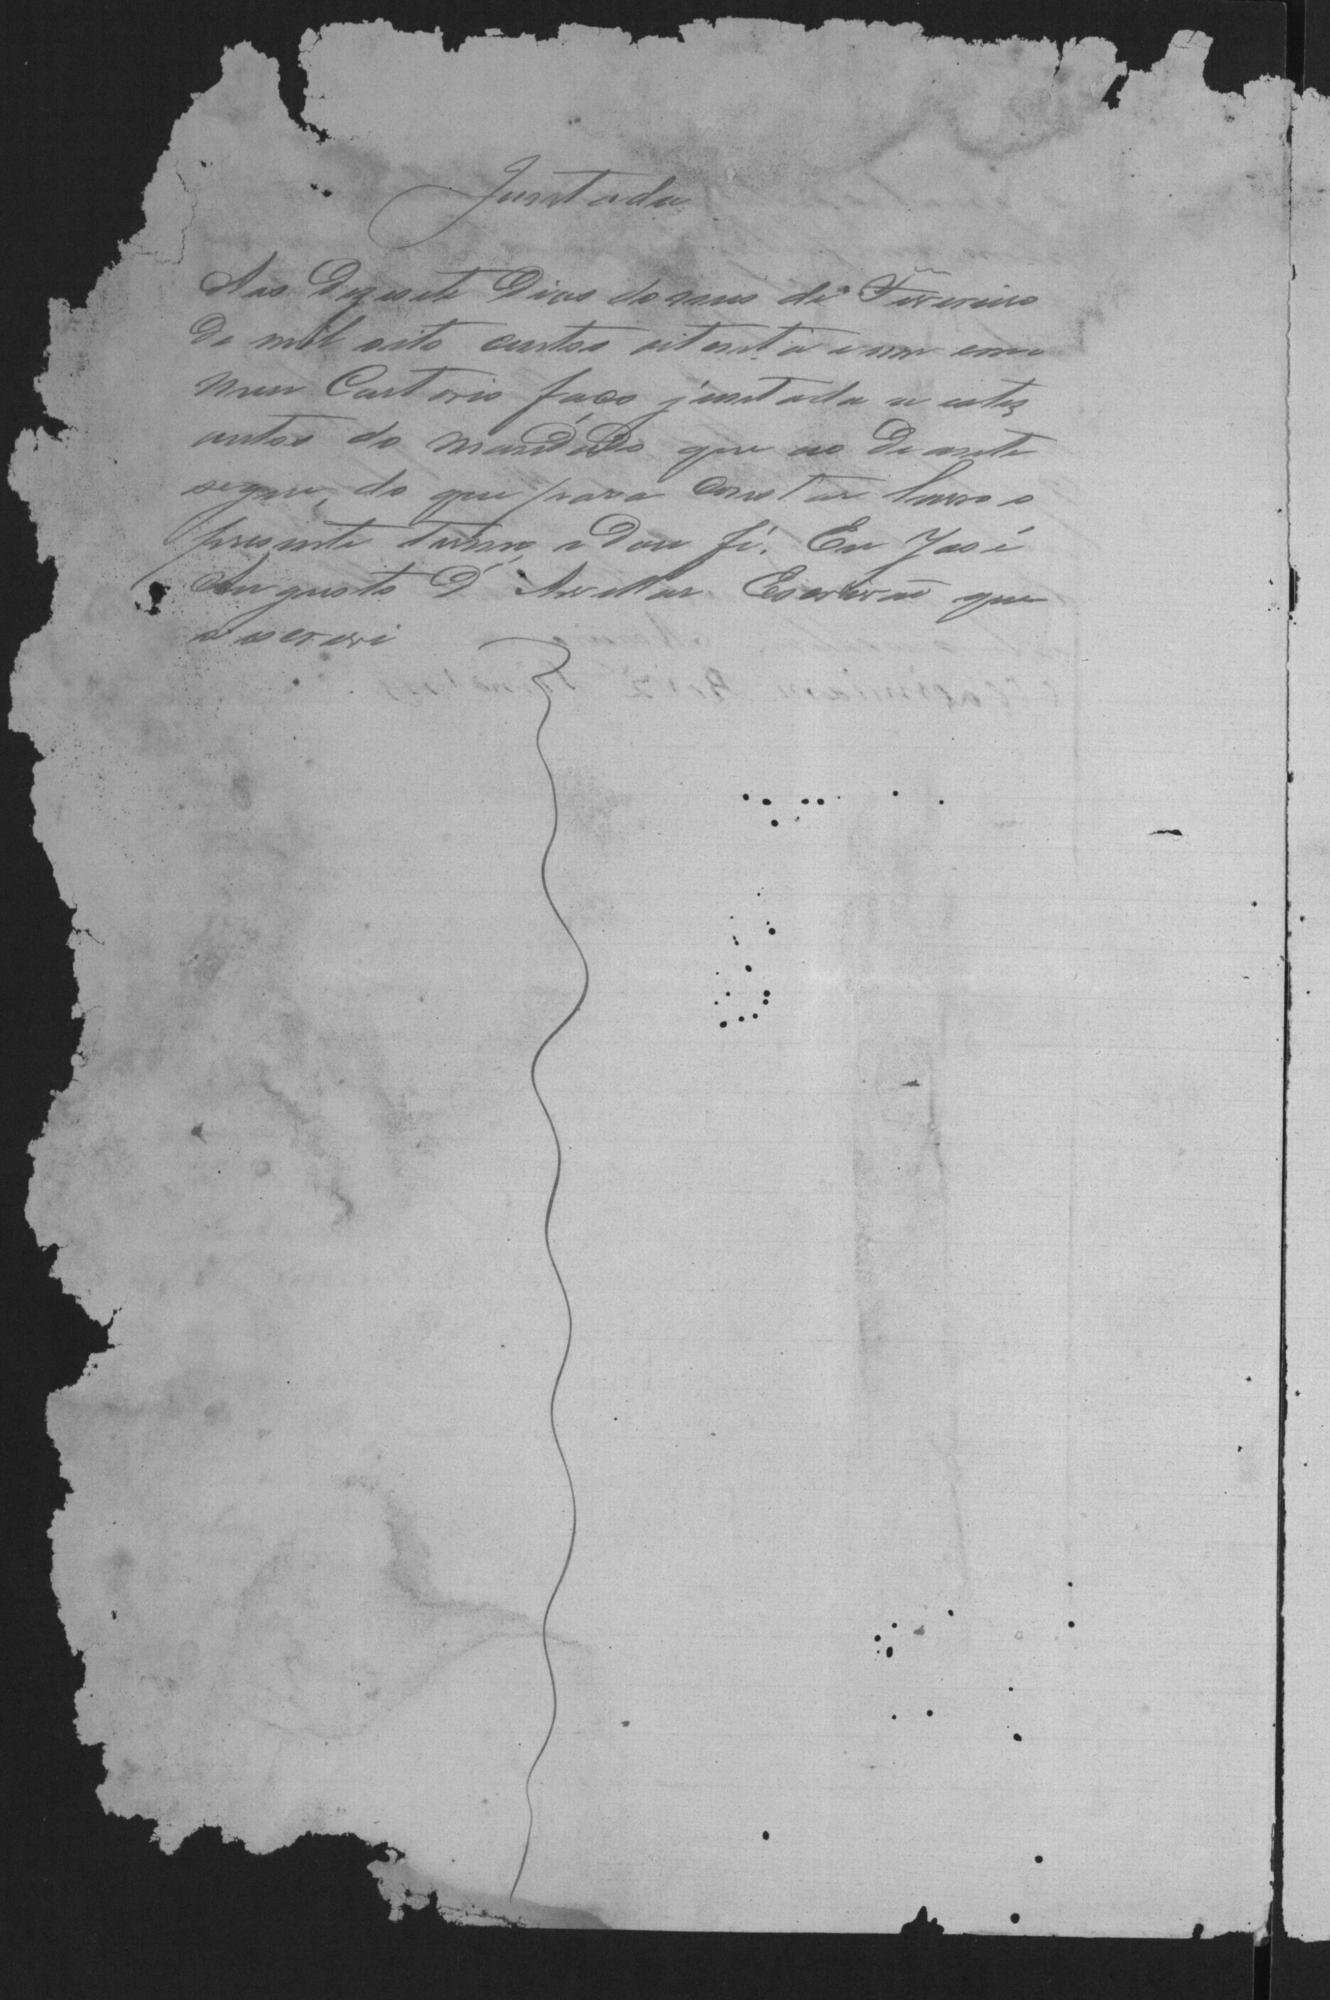 Juntada
Aos Dezesete Dias do mes de Fevereiro
De mil oito centos oitenta e um em
meu Cartorio faço juntada a estes
autos do mandado que ao De ante
segue, do que para constar lavro o
presente termo, e dou fé. Eu José
Augusto D'Avellar Escrivão que
o escrevi